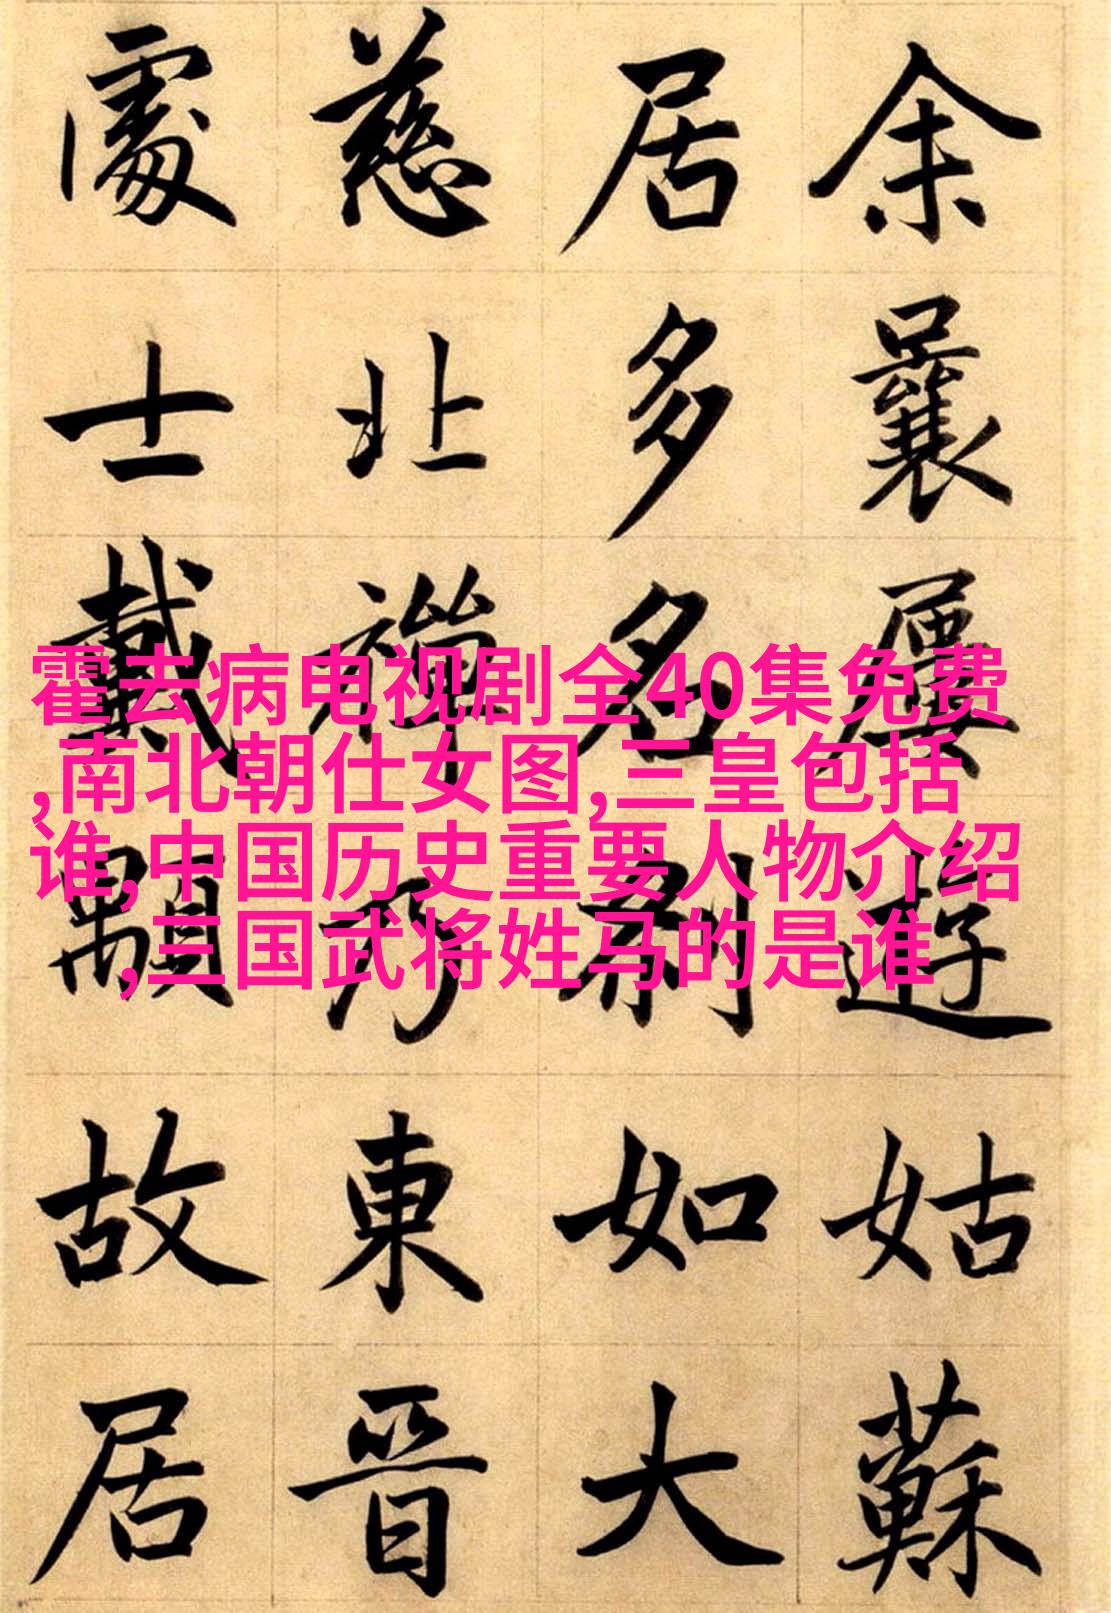 余曩屢遊姑蘇
居多名刹如大
慈北禪乃東晉
處士戴顒故居
霍去病电视剧全40集免费
,南北朝仕女图,三皇包括
谁,中国历史重要人物介绍
,三国武将姓马的是谁